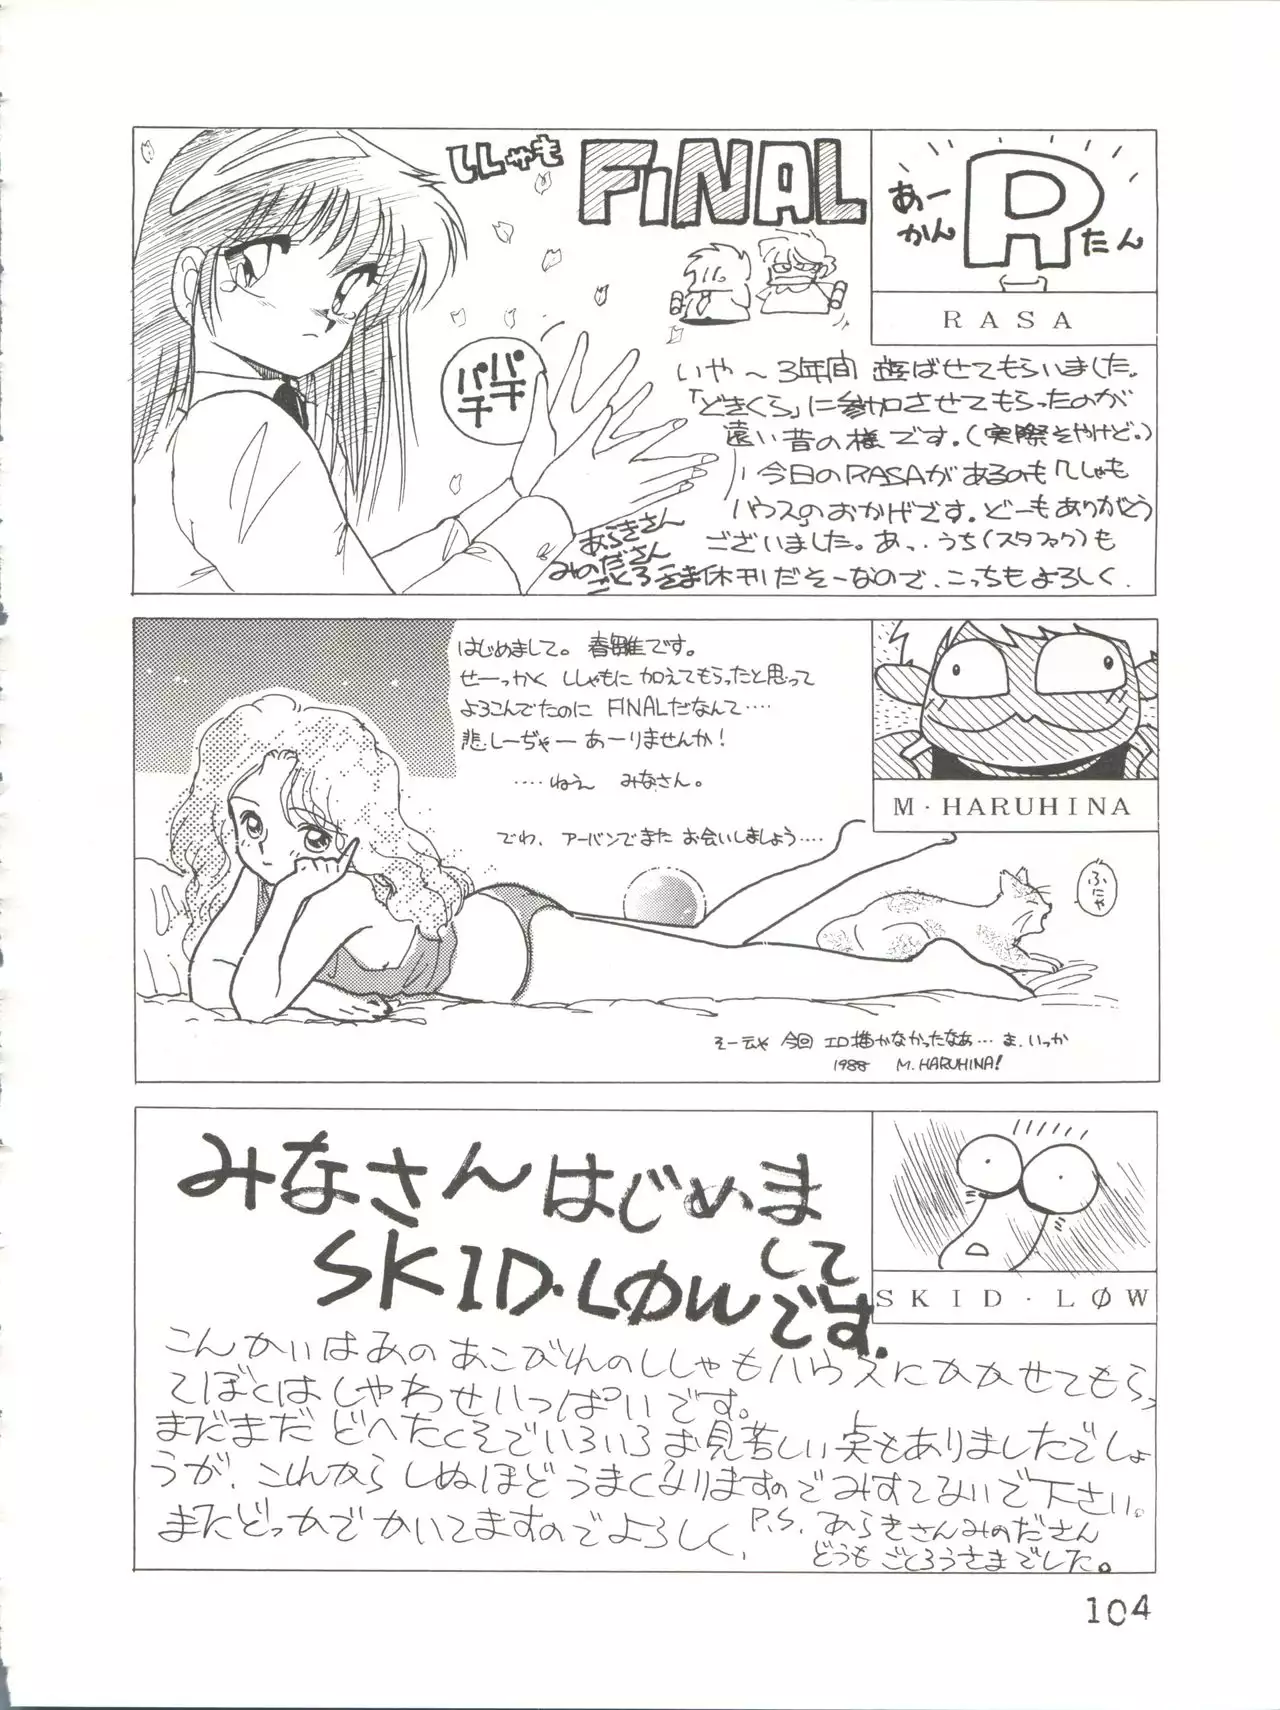 ししゃも
FiNAL
あーかん
R
たん
RASA
パチ
パチ
いや〜3年間 遊ばせてもらいました。
「どきくら」に参加させてもらったのが
遠い昔の様です。(実際そやけど。)
今日のRASAがあるのも「ししゃも
ハウス」のおかげです。どーもありがとう
ございました。あ、‥うち(スタファク)も
休刊だそーなので、こっちもよろしく。
あらきさん
みのださん
ごとろーさま
はじめまして。春雛です。
せーっかく ししゃもに 加えてもらったと思って
よろこんでたのに FINALだなんて‥‥
悲しーぢゃーあーりませんか!
‥‥ねえ みなさん。
でわ、アーバンでまた お会いしましょう‥‥
M・HARUHINA
ふにゃ
そー云や 今回 エロ描かなかったなあ… ま、いっか
1988 M.HARUHINA!
みなさんはじめま
して
SKID・LØWです。
SKID・LØW
こんかいはあの あこがれのししゃもハウスにかかせてもらっ
てぼくは しゃわせいっぱいです。
まだまだ どへたくそでいろいろお見苦しい実もありましたでしょ
うが、これからしぬほどうまくなりますのでみすてないで下さい。
またどっかでかいてますのでよろしく、
P.S. あらきさんみのださん
どうも ごとろうさまでした。
104